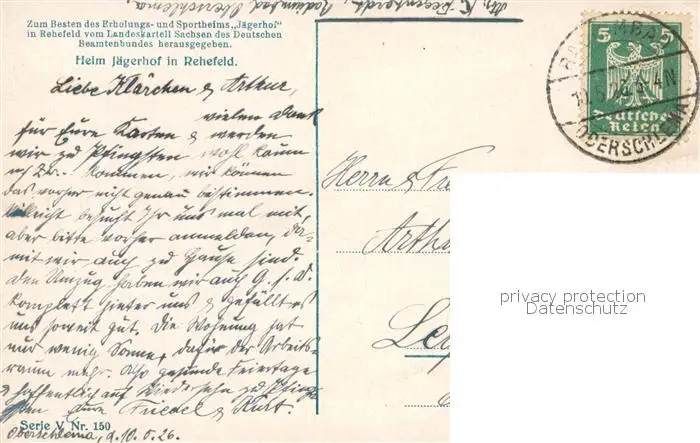 Absr. K. Degenhardt, Radiumbad Oberschlema,
Zum Besten des Erholungs- und Sportheims „Jägerhof"
in Rehefeld vom Landeskartell Sachsen des Deutschen
Beamtenbundes herausgegeben.
Heim Jägerhof in Rehefeld.
Liebe Klärchen & Arthur,
vielen Dank
für Eure Karten & werden
wir zu Pfingsten wohl kaum
nach kommen, wir können
das vorher nicht genau bestimmen.
Vielleicht besucht Ihr uns mal mit,
aber bitte vorher anmelden, da-
mit wir auch zu Hause sind.
Den Umzug haben wir auch G. s. D.
komplett hinter uns & gefällt es
uns soweit gut. Die Wohnung hat
nur wenig Sonne, dafür der Arbeits-
raum mehr. Also gesunde Feiertage
& hoffentlich auf Wiedersehn zu Pfing-
sten Eure Friedel & Kurt.
Serie V Nr. 150
Oberschlema, d. 10.5.26.
5 5
Deutsches
Reich
OBERSCHLEMA
Herrn &
Arth
Le
privacy protection
Datenschutz